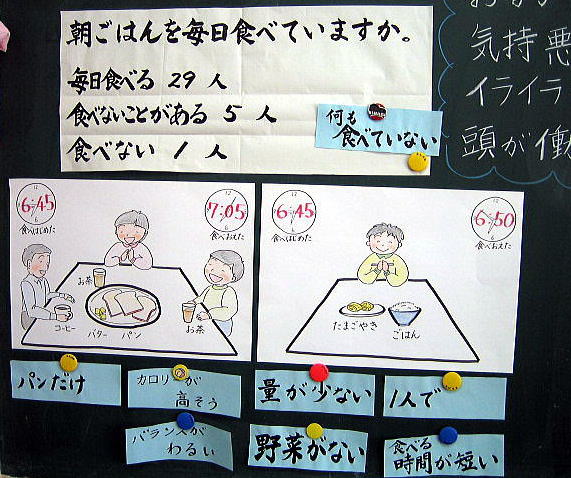 朝ごはんを毎日食べていますか。
毎日食べる 29 人
食べないことがある 5 人
食べない 1 人
何も
食べていない
気持悪
イライラ
頭が働
6:45
食べはじめた
7:05
食べおえた
お茶
コーヒー
バター
パン
お茶
6:45
食べはじめた
6:50
食べおえた
たまごやき
ごはん
パンだけ
カロリーが
高そう
量が少ない
1人で
バランスが
わるい
野菜がない
食べる
時間が短い